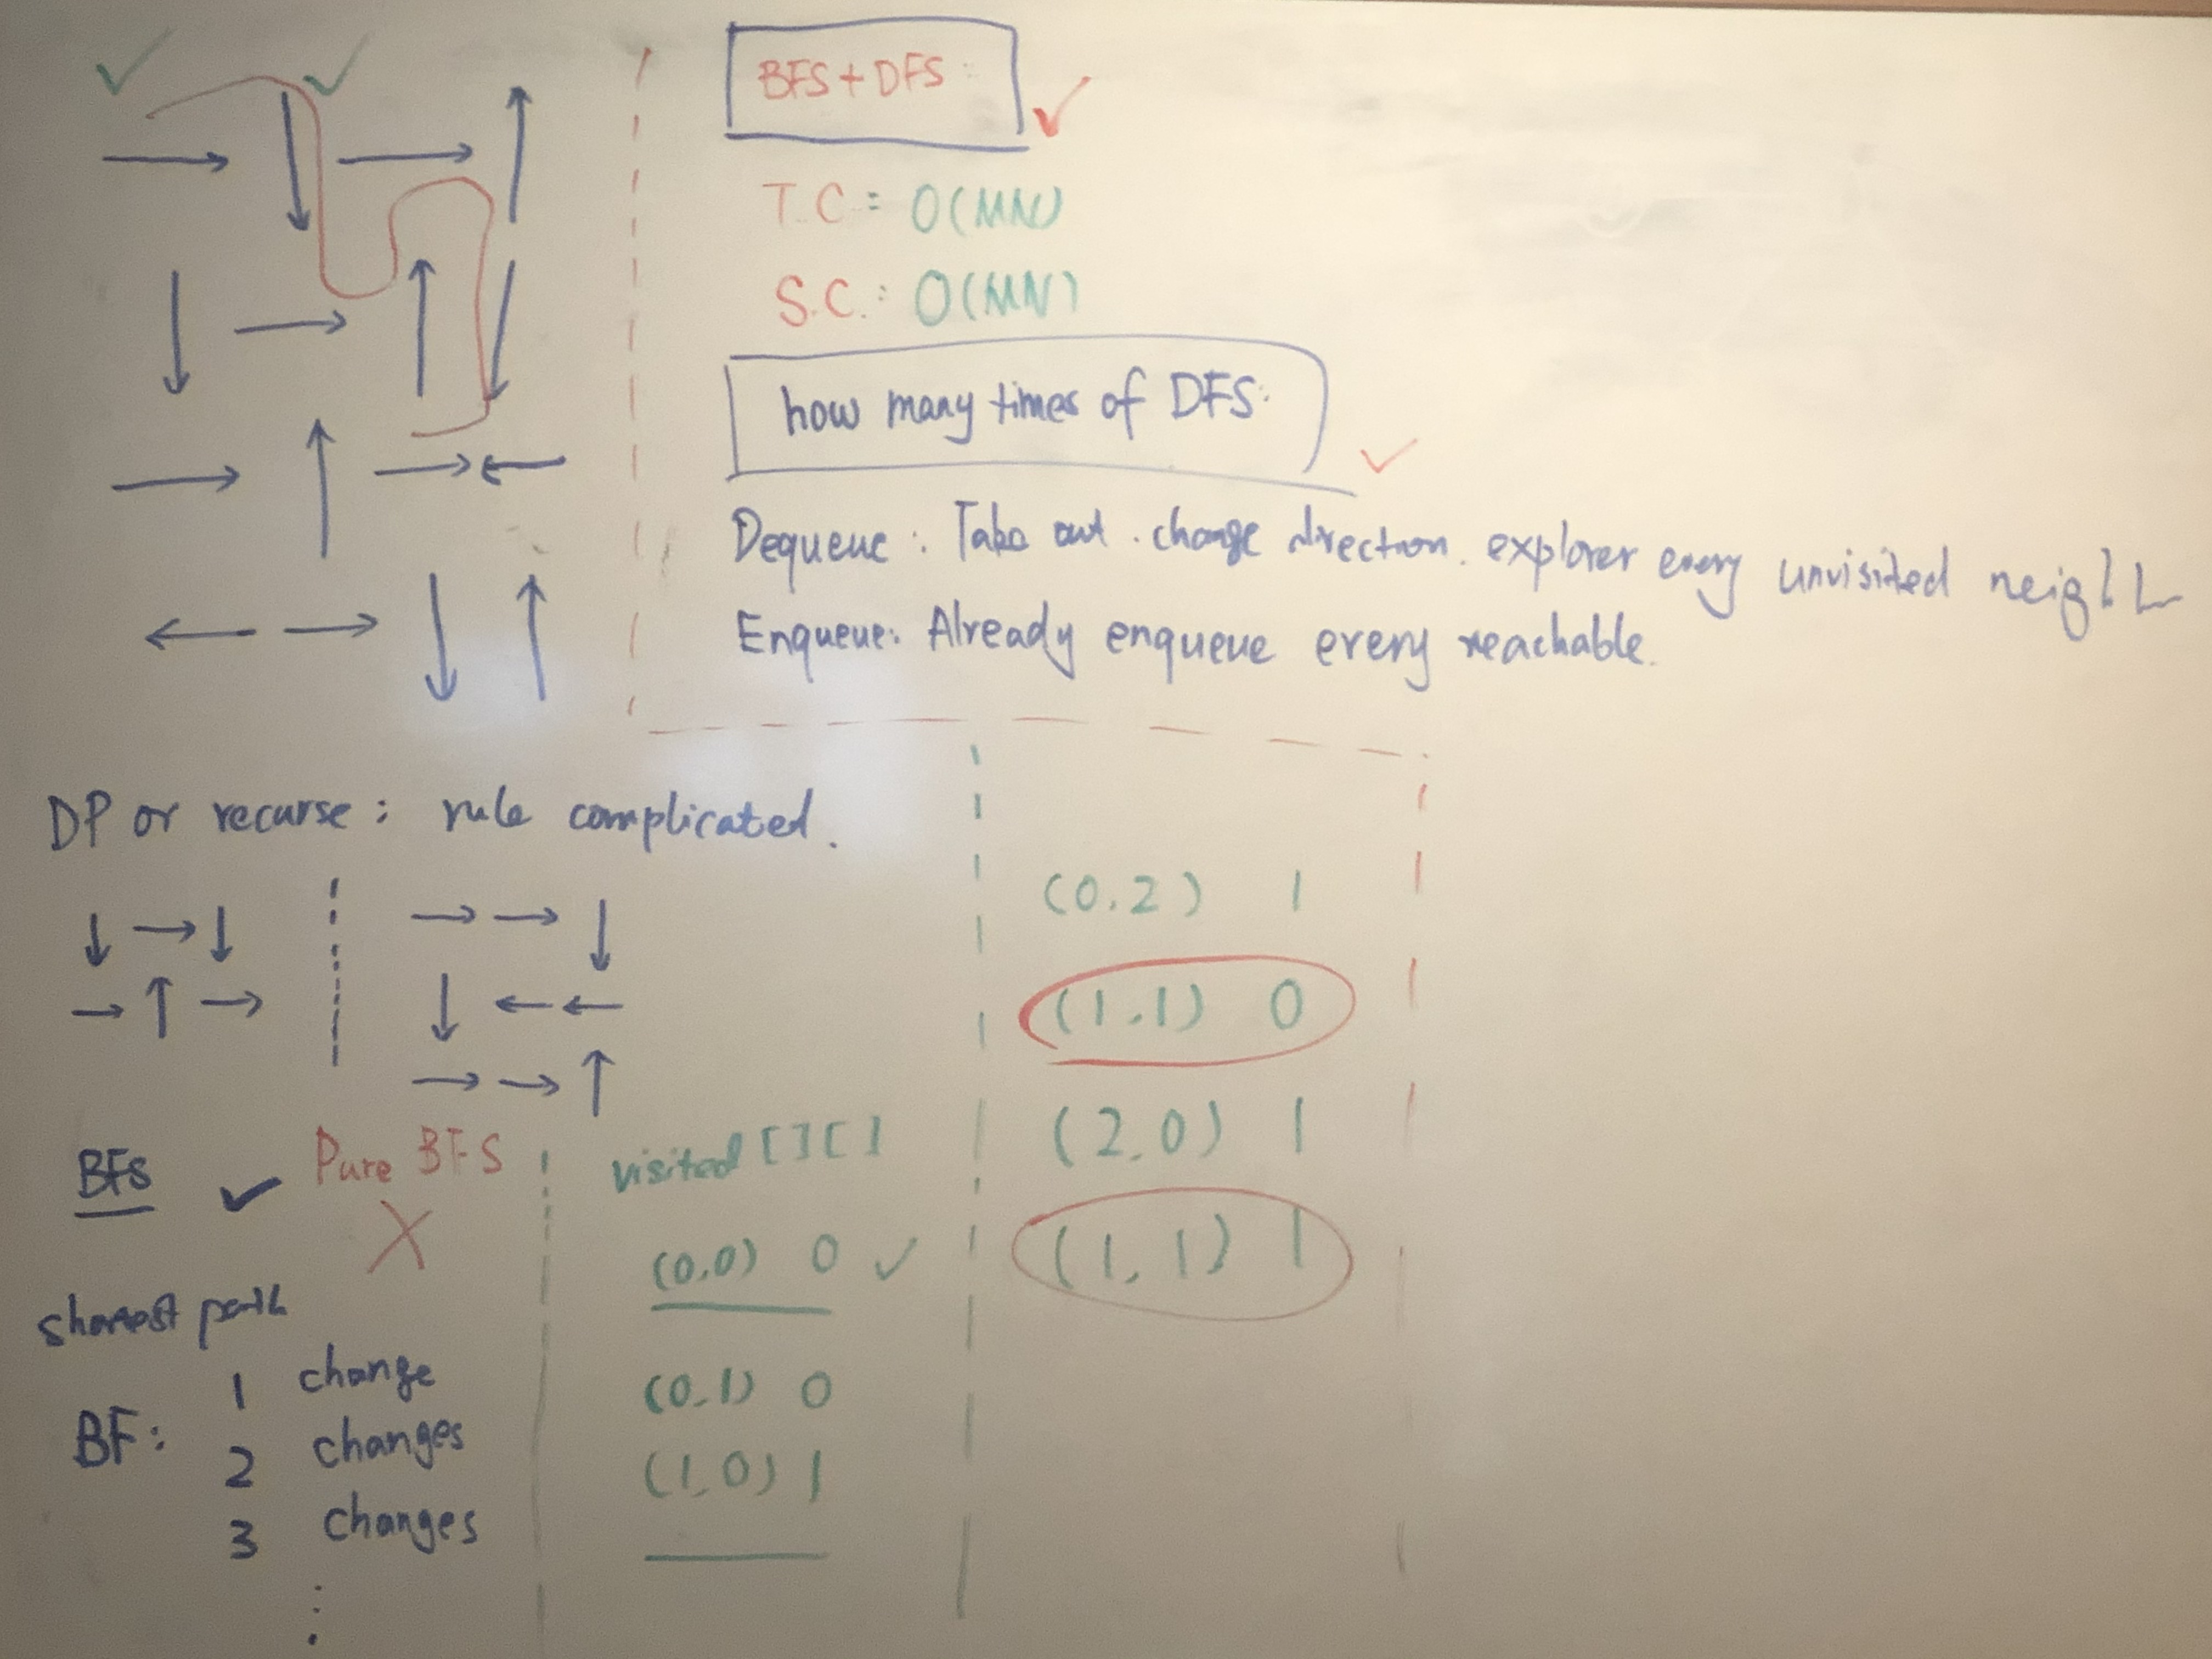 BFS + DFS :
T.C : O(MN)
S.C. : O(MN)
how many times of DFS:
Dequeue : Take out . change direction . explorer every unvisited
Enqueue: Already enqueue every reachable.
DP or recurse : rule complicated .
BFS
Pure BFS
shortest path
BF:
1 change
2 changes
3 changes
visited [ ] [ ]
(0,0) 0
(0,1) 0
(1,0) 1
(0,2) 1
(1,1) 0
(2,0) 1
(1,1) 1